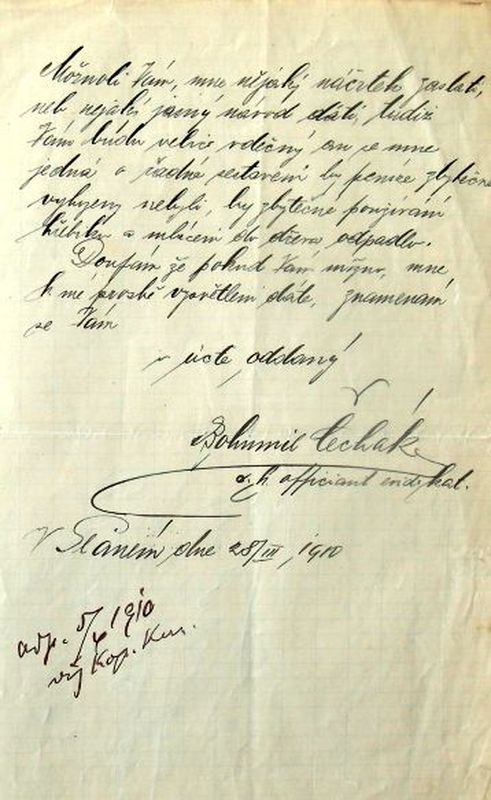 Možnoli Vám, mne nějaký náčrtek zaslati,
neb nějaký jasný návod dáti, tudiz
Vám budu velice vděčný an se mne
jedná o řádné sestavení by peníze zbytečně
vyhozeny nebyli, by zbytečné používání
hřebíků a mlácení do dřeva odpadlo.
Doufám že pokud Vám možno, mne
k mé prosbě vysvětlení dáte, znamenám
se Vám
v úctě oddaný
Bohumil Čechák
officiant
V Slaném dne 28/III, 1910
odp. 5/4 1910
viz Kop. Kn.